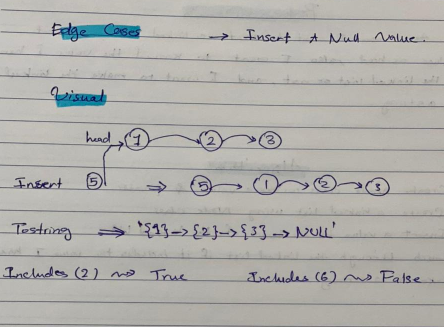 Edge Cases → Insert A Null Value.
Visual
head 1 2 3
Insert 5 ⇒ 5 1 2 3
Tostring ⇒ '{1}->{2}->{3}->NULL'
Includes (2) ⇝ True Includes (6) ⇝ False.